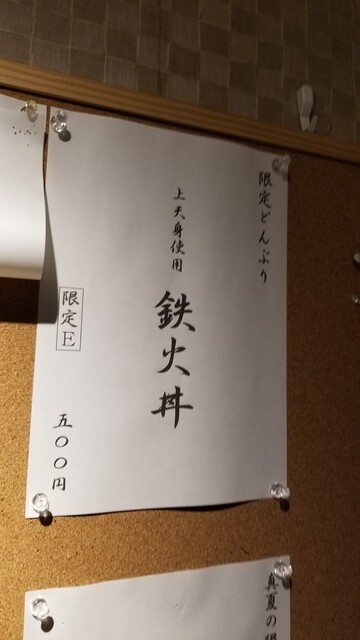 限定どんぶり
上天身使用
鉄火丼
限定E
五〇〇円
真夏の限